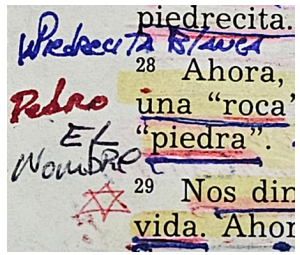 piedrecita.
Piedrecita Blanca
28 Ahora,
Pedro
una “roca”
EL
“piedra”.
NOMBRE
29 Nos din
vida. Ahor